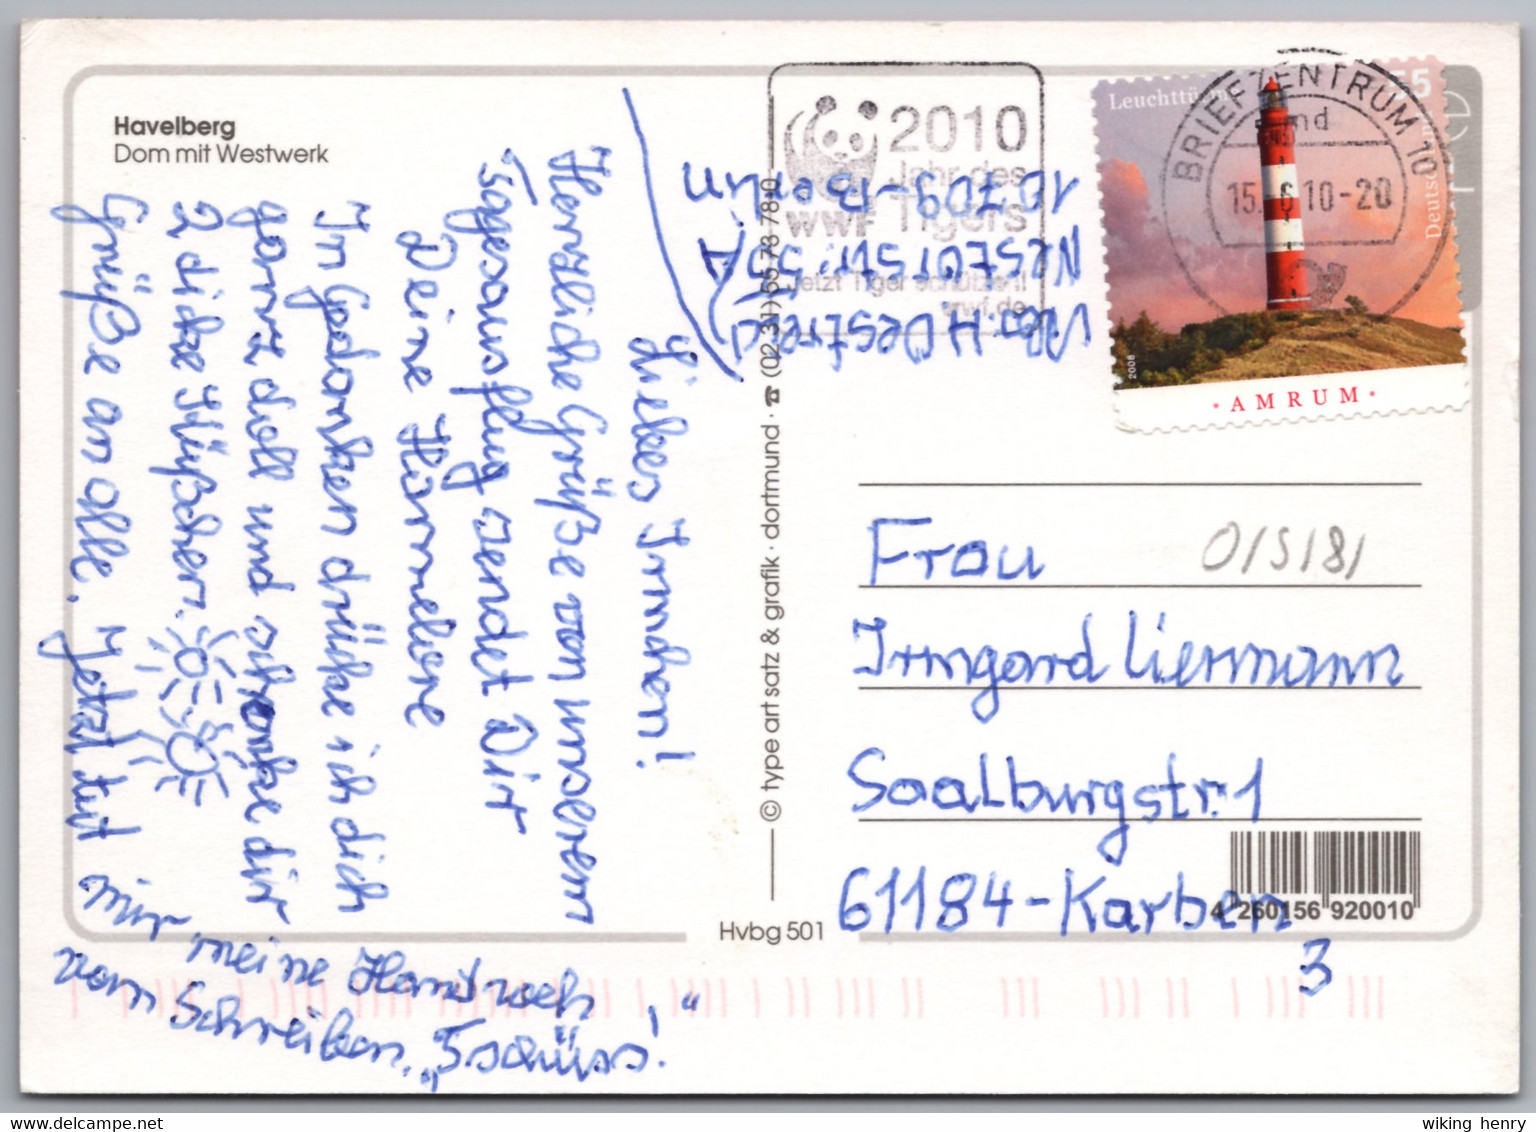 Havelberg
Dom mit Westwerk
Liebes Irmchen!
Herzliche Grüße von unserem
Tagesausflug sendet Dir
Deine Hannelore
In Gedanken drücke ich dich
ganz doll und schenke dir
2 dicke Küßchen.
Grüße an alle. Jetzt tut
mir meine Hand weh
vom Schreiben. „Tschüss!“
10709-Berlin
Nestorstr. 55
© type art satz & grafik · dortmund · ☎ (02 31) 55 73 78-0
Hvbg 501
2010
Jahr des
Tigers
WWF
Jetzt Tiger schützen!
wwf.de
BRIEFZENTRUM 10
15.6.10-20
Leuchttürme
55
Deutschland
2008
· AMRUM ·
Frau
0/5/81
Irmgard Liermann
Saalburgstr. 1
61184-Karben
3
4 260156 920010
wiking henry